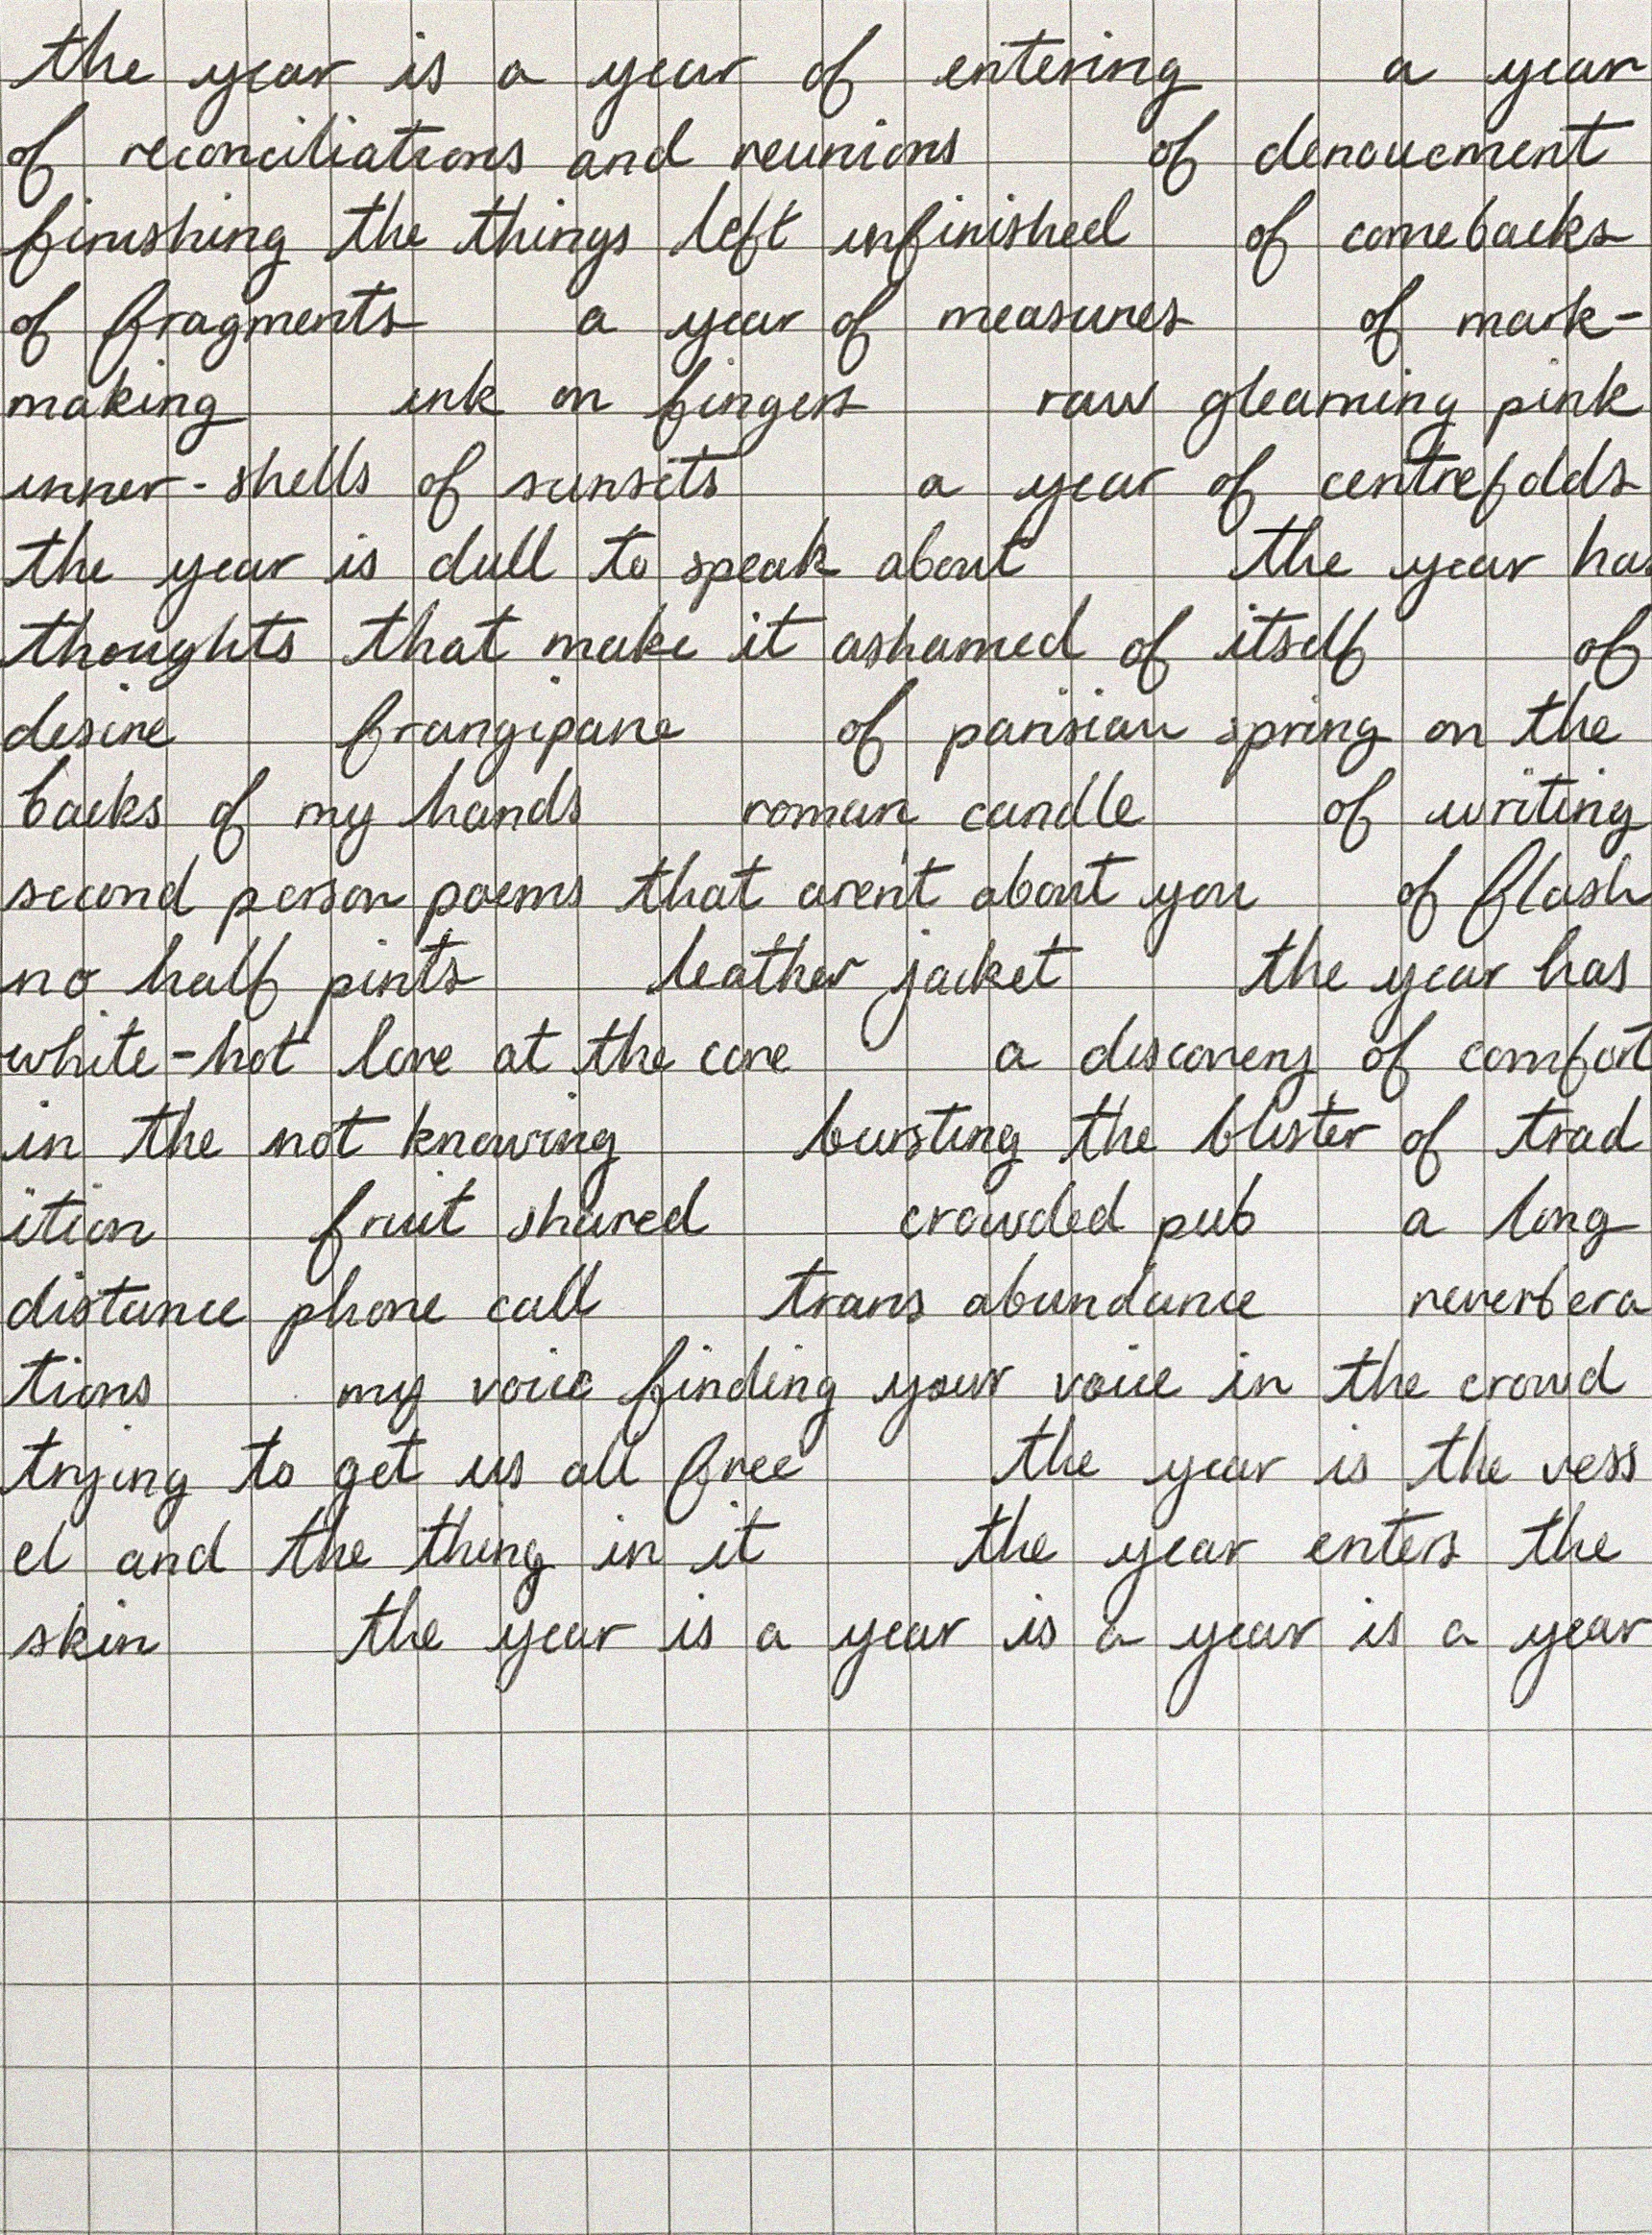 the year is a year of entering a year
of reconciliations and reunions of denouement
finishing the things left unfinished of comebacks
of fragments a year of measures of mark-
making ink on fingers raw gleaming pink
inner-shells of sunsets a year of centrefolds
the year is dull to speak about the year has
thoughts that make it ashamed of itself of
desire frangipane of parisian spring on the
backs of my hands roman candle of writing
second person poems that aren't about you of flash
no half pints leather jacket the year has
white-hot love at the core a discovery of comfort
in the not knowing bursting the blister of trad
ition fruit shared crowded pub a long
distance phone call trans abundance reverbera
tions my voice finding your voice in the crowd
trying to get us all free the year is the vess
el and the thing in it the year enters the
skin the year is a year is a year is a year